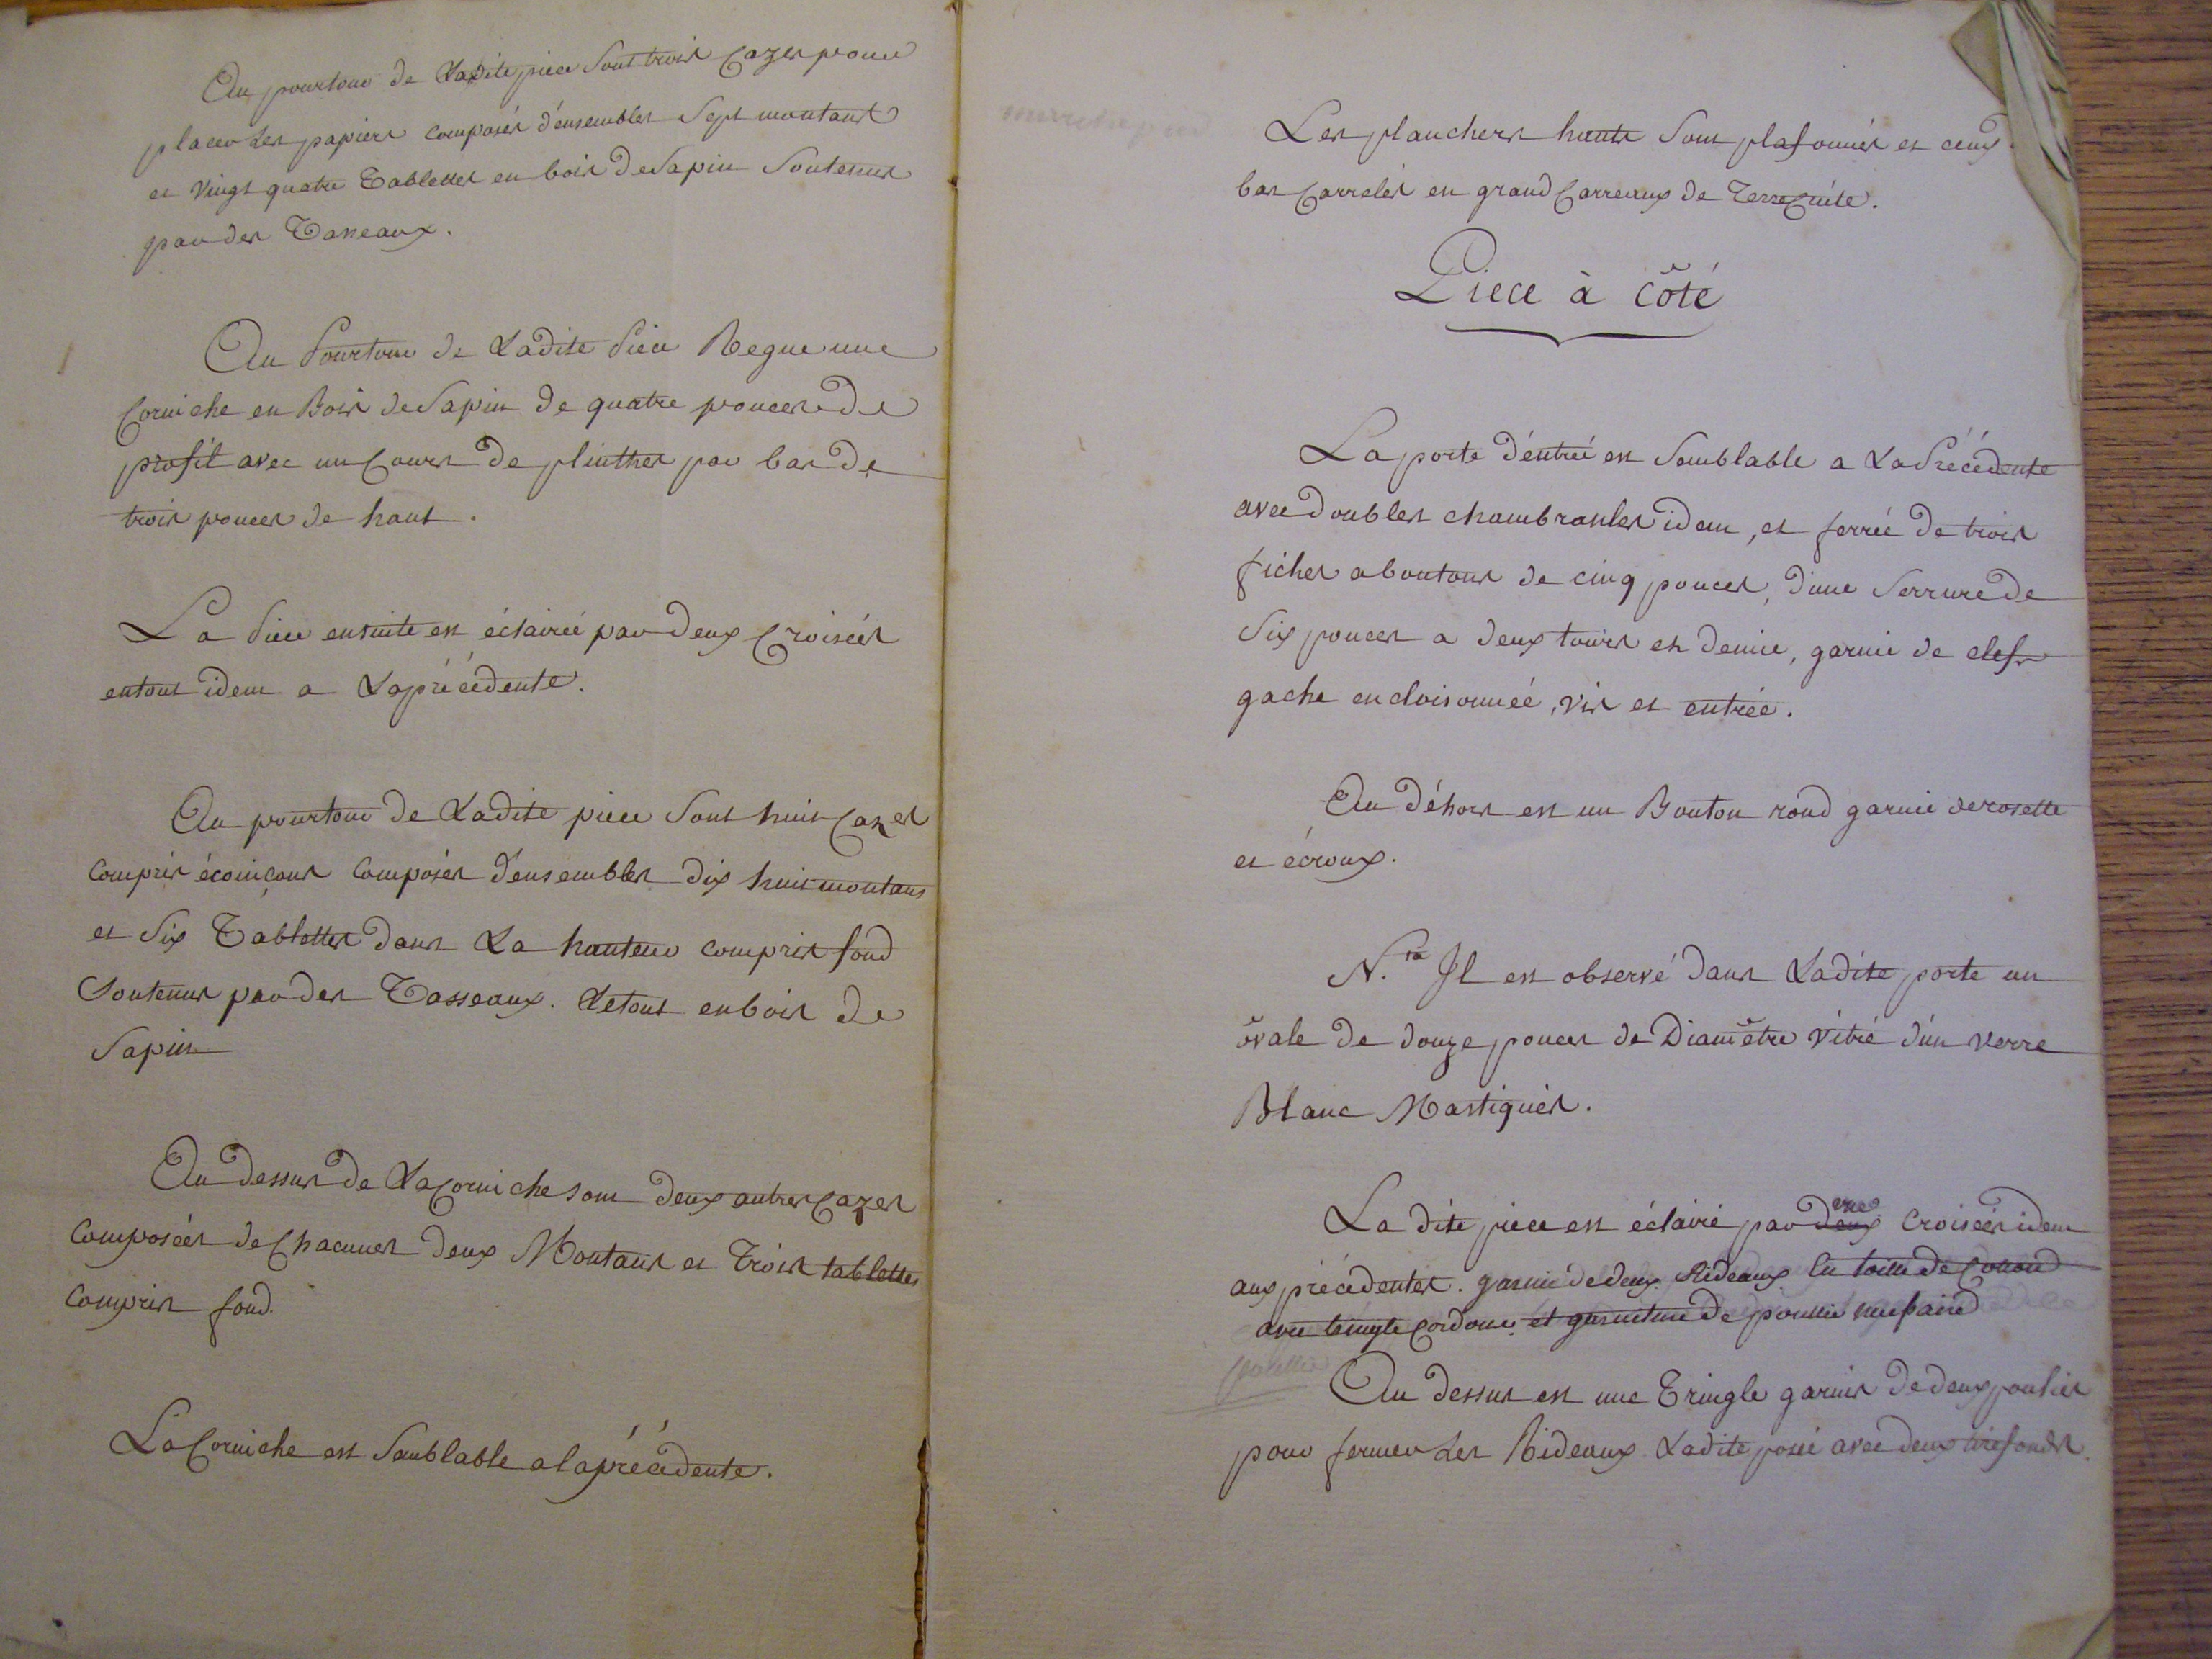 Au pourtour de Ladite piece Sont trois Cazes pour
placer Les papiers composés d'ensembles Sept montants
et Vingt quatre Tablettes en bois de Sapin Soutenues
par des Tasseaux.
Au Pourtour de Ladite Piece Regne une
Corniche en Bois de Sapin de quatre pouces de
profil avec un Cours de plinthes par bas de
trois pouces de haut.
La Piece ensuite est éclairée par deux Croisées
entout idem a La précédente.
Au pourtour de Ladite piece Sont huit Cazes
compris écoinçons composés d'ensembles dix huit montans
et Six Tablettes dans La hauteur compris fond
Soutenus par des Tasseaux. Le tout en bois de
Sapin
Au dessus de La Corniche sont deux autres Cazes
Composées de Chacunes deux Montans et Trois tablettes
Compris fond.
La Corniche est Semblable a la précédente.
Les planchers hauts Sont plafonnés et ceux
bas Carrelés en grand Carreaux de Terre Cuite.
Piece à côté
La porte d'entrée est Semblable a La Précédente
avec doubles chambranles idem, et ferrée de trois
fiches a boutons de cinq pouces, d'une Serrure de
Six pouces a deux tours et demie, garnie de clefs
gache encloisonnée, vis et entrée.
Au déhors est un Bouton rond garnie de rosette
et écroux.
N.ta Il est observé dans Ladite porte un
ôvale de douze pouces de Diamêtre vitré d'un verre
Blanc Mastiqués.
La dite piece est éclairé par deux une Croisées idem
aux précédentes. garnie de deux Rideaux En toille de Cotond
avec tringle Cordons et garniture de poullie une paire
Au dessus est une Tringle garnis de deux poulies
pour fermer Les Rideaux Ladite posée avec deux tirefonds.